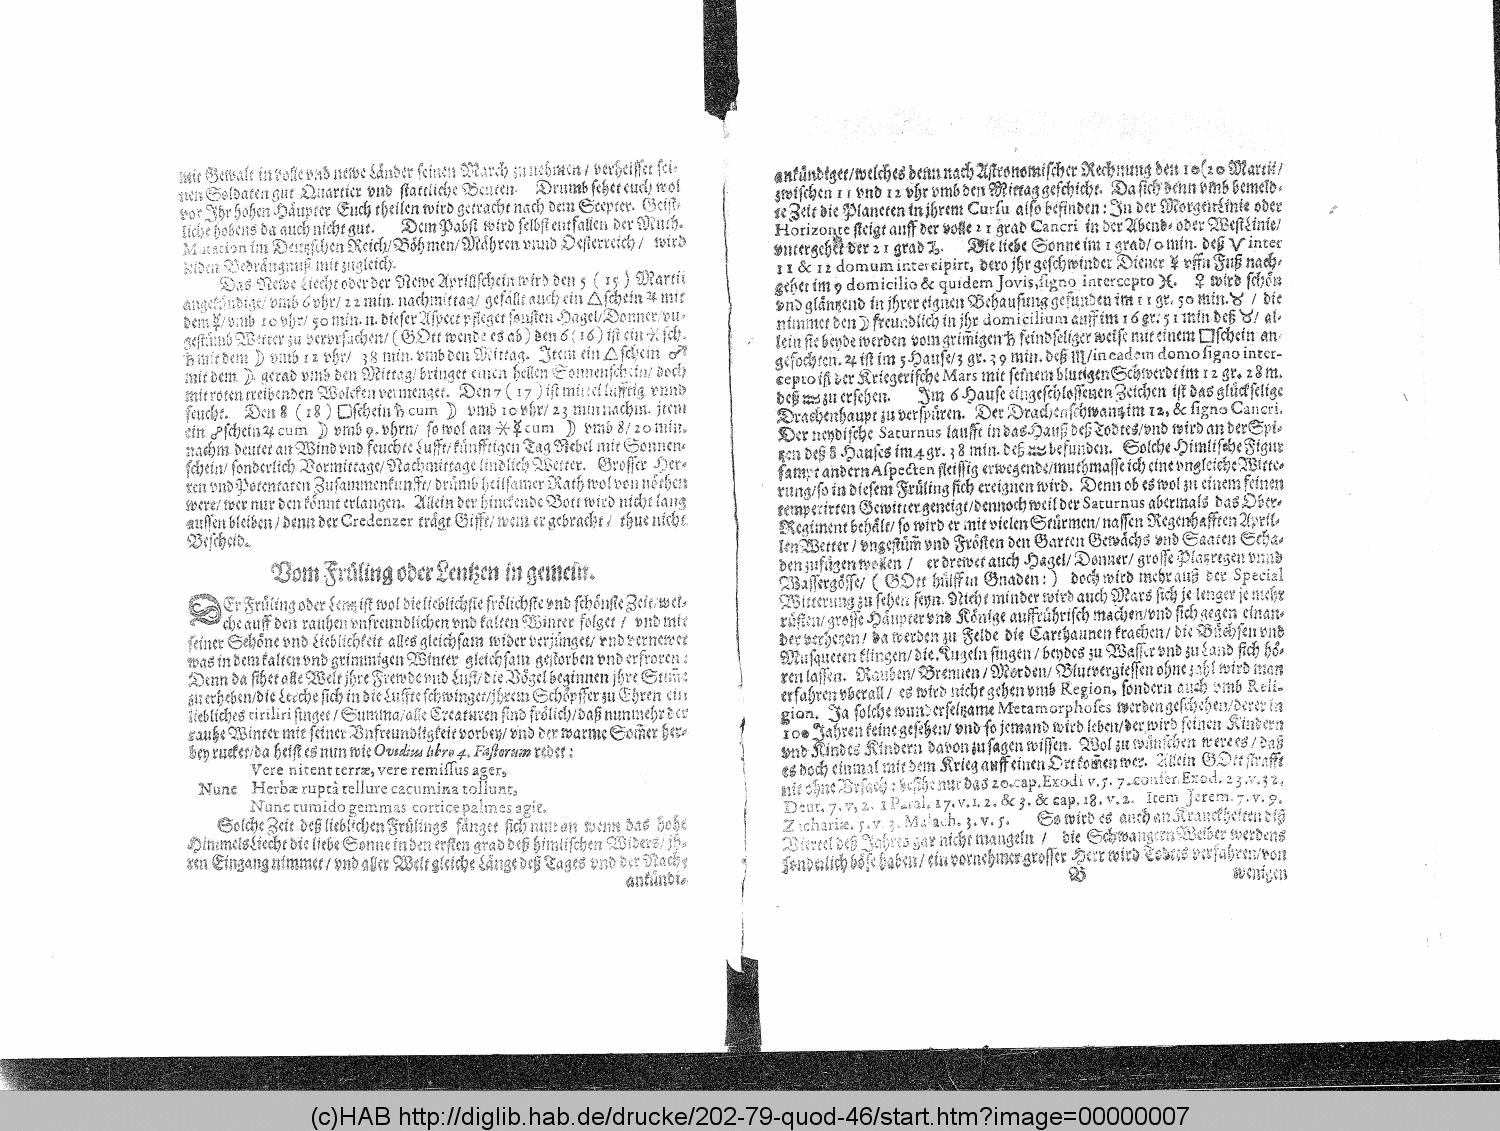 mit Gewalt in volle vnd newe Länder seinen March zu nehmen / verheisset sei-
nen Soldaten gut Quartier vnd stattliche Beuten. Drumb sehet euch wol
vor Ihr hohen Häupter Euch theilen wird getracht nach dem Scepter. Geist-
liche hohens da auch nicht gut. Dem Pabst wird selbst entfallen der Muth.
Mutation im Deutschen Reich/ Böhmen/ Mähren vnnd Oesterreich / wird
beiden Bedrängnuß mit zugleich.
Das Newe Liecht oder der Newe Aprillschein wird den 5 ( 15 ) Martii
angekündige/ vmb 6 vhr/ 22 min. nachmittag/ gefällt auch ein △ schein ♃ mit
dem ☿/ vmb 10 vhr/ 50 min. n. dieser Aspect pfleget sonsten Hagel/ Donner/ vn-
gestümb Wetter zu vervrsachen/ ( GOtt wende es ab ) den 6 ( 16 ) ist ein ⚹ sch.
♄ mit dem ☽ vmb 12 vhr/ 38 min. vmb den Mittag. Item ein △ schein ♂
mit dem ☽ gerad vmb den Mittag/ bringet einen hellen Sonnenschein/ doch
mit roten treibenden Wolcken vermenget. Den 7 ( 17 ) ist mittel lufftig vnnd
feucht. Den 8 ( 18 ) □ schein ♄ cum ☽ vmb 10 vhr/ 23 min nachm. item
ein ☍ schein ♃ cum ☽ vmb 9. vhrn/ so wol am ⚹ ☿ cum ☽ vmb 8/ 20 min.
nachm. deutet an Wind vnd feuchte Lufft/ künfftigen Tag Nebel mit Sonnen-
schein/ sonderlich Vormittage/ Nachmittage lindlich Wetter. Grosser Her-
ren vnd Potentaten Zusammenkunfft/ drümb heilsamer Rath wol von nöthen
were/ wer nur den könnt erlangen. Allein der hinckende Bott wird nicht lang
aussen bleiben / denn der Credenzer trägt Gifft/ wem er gebracht / thue nicht
Bescheid.
Vom Früling oder Lentzen in gemein.
DEr Früling oder Lentz ist wol die lieblichste frölichste vnd schönste Zeit/ wel-
che auff den rauhen vnfreundlichen vnd kalten Winter folget / vnd mit
seiner Schöne vnd Lieblichkeit alles gleichsam wider verjünget/ vnd vernewet
was in dem kalten vnd grimmigen Winter gleichsam gestorben vnd erfroren:
Denn da sihet alle Welt jhre Frewde vnd Lust/ die Vögel beginnen jhre Stim̃:
zu erheben/ die Lerche sich in die Luffte schwinget/ jhrem Schöpffer zu Ehren ein
liebliches tiriliri singet/ Summa/ alle Creaturen sind frölich/ daß nunmehr der
rauhe Winter mit seiner Vnfreundligkeit vorbey/ vnd der warme Som̃er her-
bey rucket/ da heist es nun wie Ovidius libro 4. Fastorum redet:
Vere nitent terræ, vere remissus ager,
Nunc Herbæ ruptâ tellure cacumina tollunt,
Nunc tumido gemmas cortice palmes agit.
Solche Zeit deß lieblichen Frülings fänget sich nun an wenn das hohe
Himmels Liecht die liebe Sonne in den ersten grad deß himlischen Widers/ jh-
ren Eingang nimmet / vnd aller Welt gleiche Länge deß Tages vnd der Nacht
ankündi-
ankündiget/ welches denn nach Astronomischer Rechnung den 10 (20 Martii/
zwischen 11 vnd 12 vhr vmb den Mittag geschicht. Da sich denn vmb bemeld-
te Zeit die Planeten in jhrem Cursu also befinden: In der MorgenLinie oder
Horizonte steigt auff der volle 21 grad Cancri in der Abend- oder WestLinie/
vntergehet der 21 grad ♑. Die liebe Sonne im 1 grad/ 0 min. deß ♈ inter
11 & 12 domum intercipirt, dero jhr geschwinder Diener ☿ vffn Fuß nach-
gehet im 9 domicilio & quidem Jovis, signo intercepto ♓. ♀ wird schön
vnd gläntzend in jhrer eignen Behausung gefunden im 11 gr. 50 min. ♉ / die
nimmet den ☽ freundlich in jhr domicilium auff im 16 gr. 51 min deß ♉/ al-
lein sie beyde werden vom grim̃igen ♄ feindseliger weise mit einem □ schein an-
gefochten. ♃ ist im 5 Hause/ 3 gr. 39 min. deß ♏/ in eadem domo signo inter-
cepto ist der Kriegerische Mars mit seinem blutigen Schwerdt im 12 gr. 28 m.
deß ♒ zu ersehen. Im 6 Hause eingeschlossenen Zeichen ist das glückselige
Drachenhaupt zu verspüren. Der Drachenschwantz im 12, & signo Cancri.
Der neydische Saturnus laufft in das Hauß deß Todtes/ vnd wird an der Spi-
tzen deß 8 Hauses im 4 gr. 38 min. deß ♒ befunden. Solche Himlische Figur
sampt andern Aspecten fleissig erwegende/ muthmasse ich eine vngleiche Witte-
rung/ so in diesem Früling sich ereignen wird. Denn ob es wol zu einem feinen
temperirten Gewitter geneigt/ dennoch weil der Saturnus abermals das Ober-
Regiment behält/ so wird er mit vielen Stürmen/ nassen Regenhafften April-
len Wetter / vngestüm̃ vnd Frösten den Garten Gewächs vnd Saaten Scha-
den zufügen wollen / er drewet auch Hagel/ Donner/ grosse Platzregen vnnd
Wassergösse/ ( GOtt hülff in Gnaden: ) doch wird mehr auß der Special
Witterung zu sehen seyn. Nicht minder wird auch Mars sich je lenger je mehr
rüsten/ grosse Häupter vnd Könige auffrührisch machen/ vnd sich gegen einan-
der verhetzen / da werden zu Felde die Carthaunen krachen / die Büchsen vnd
Musqueten klingen/ die Kugeln singen / beydes zu Wasser vnd zu Land sich hö-
ren lassen. Rauben/ Brennen / Morden/ Blutvergiessen ohne zahl wird man
erfahren vberall / es wird nicht gehen vmb Region, sondern auch vmb Reli-
gion. Ja solche wunderseltzame Metamorphoses werden geschehen/ derer in
100 Jahren keine gesehen/ vnd so jemand wird leben/ der wird seinen Kindern
vnd Kindes Kindern davon zu sagen wissen. Wol zu wünschen were es / daß
es doch einmal mit dem Krieg auff einen Ort kom̃en wer. Allein GOtt strafft
nit ohne Vrsach: besihe nur das 20. cap. Exodi v. 5. 7. confer Exod. 23. v. 32.
Deut. 7. v. 2. 1 Paral. 17. v. 1. 2. & 3. & cap. 18. v. 2. Item Jerem. 7. v. 9.
Zachariæ. 5. v. 3. Malach. 3. v. 5. So wird es auch an Kranckheiten diß
Viertel deß Jahres gar nicht mangeln / die Schwangern Weiber werdens
sonderlich böse haben/ ein vornehmer grosser Herr wird Todtes verfahren/ von
B wenigen
(c)HAB http://diglib.hab.de/drucke/202-79-quod-46/start.htm?image=00000007